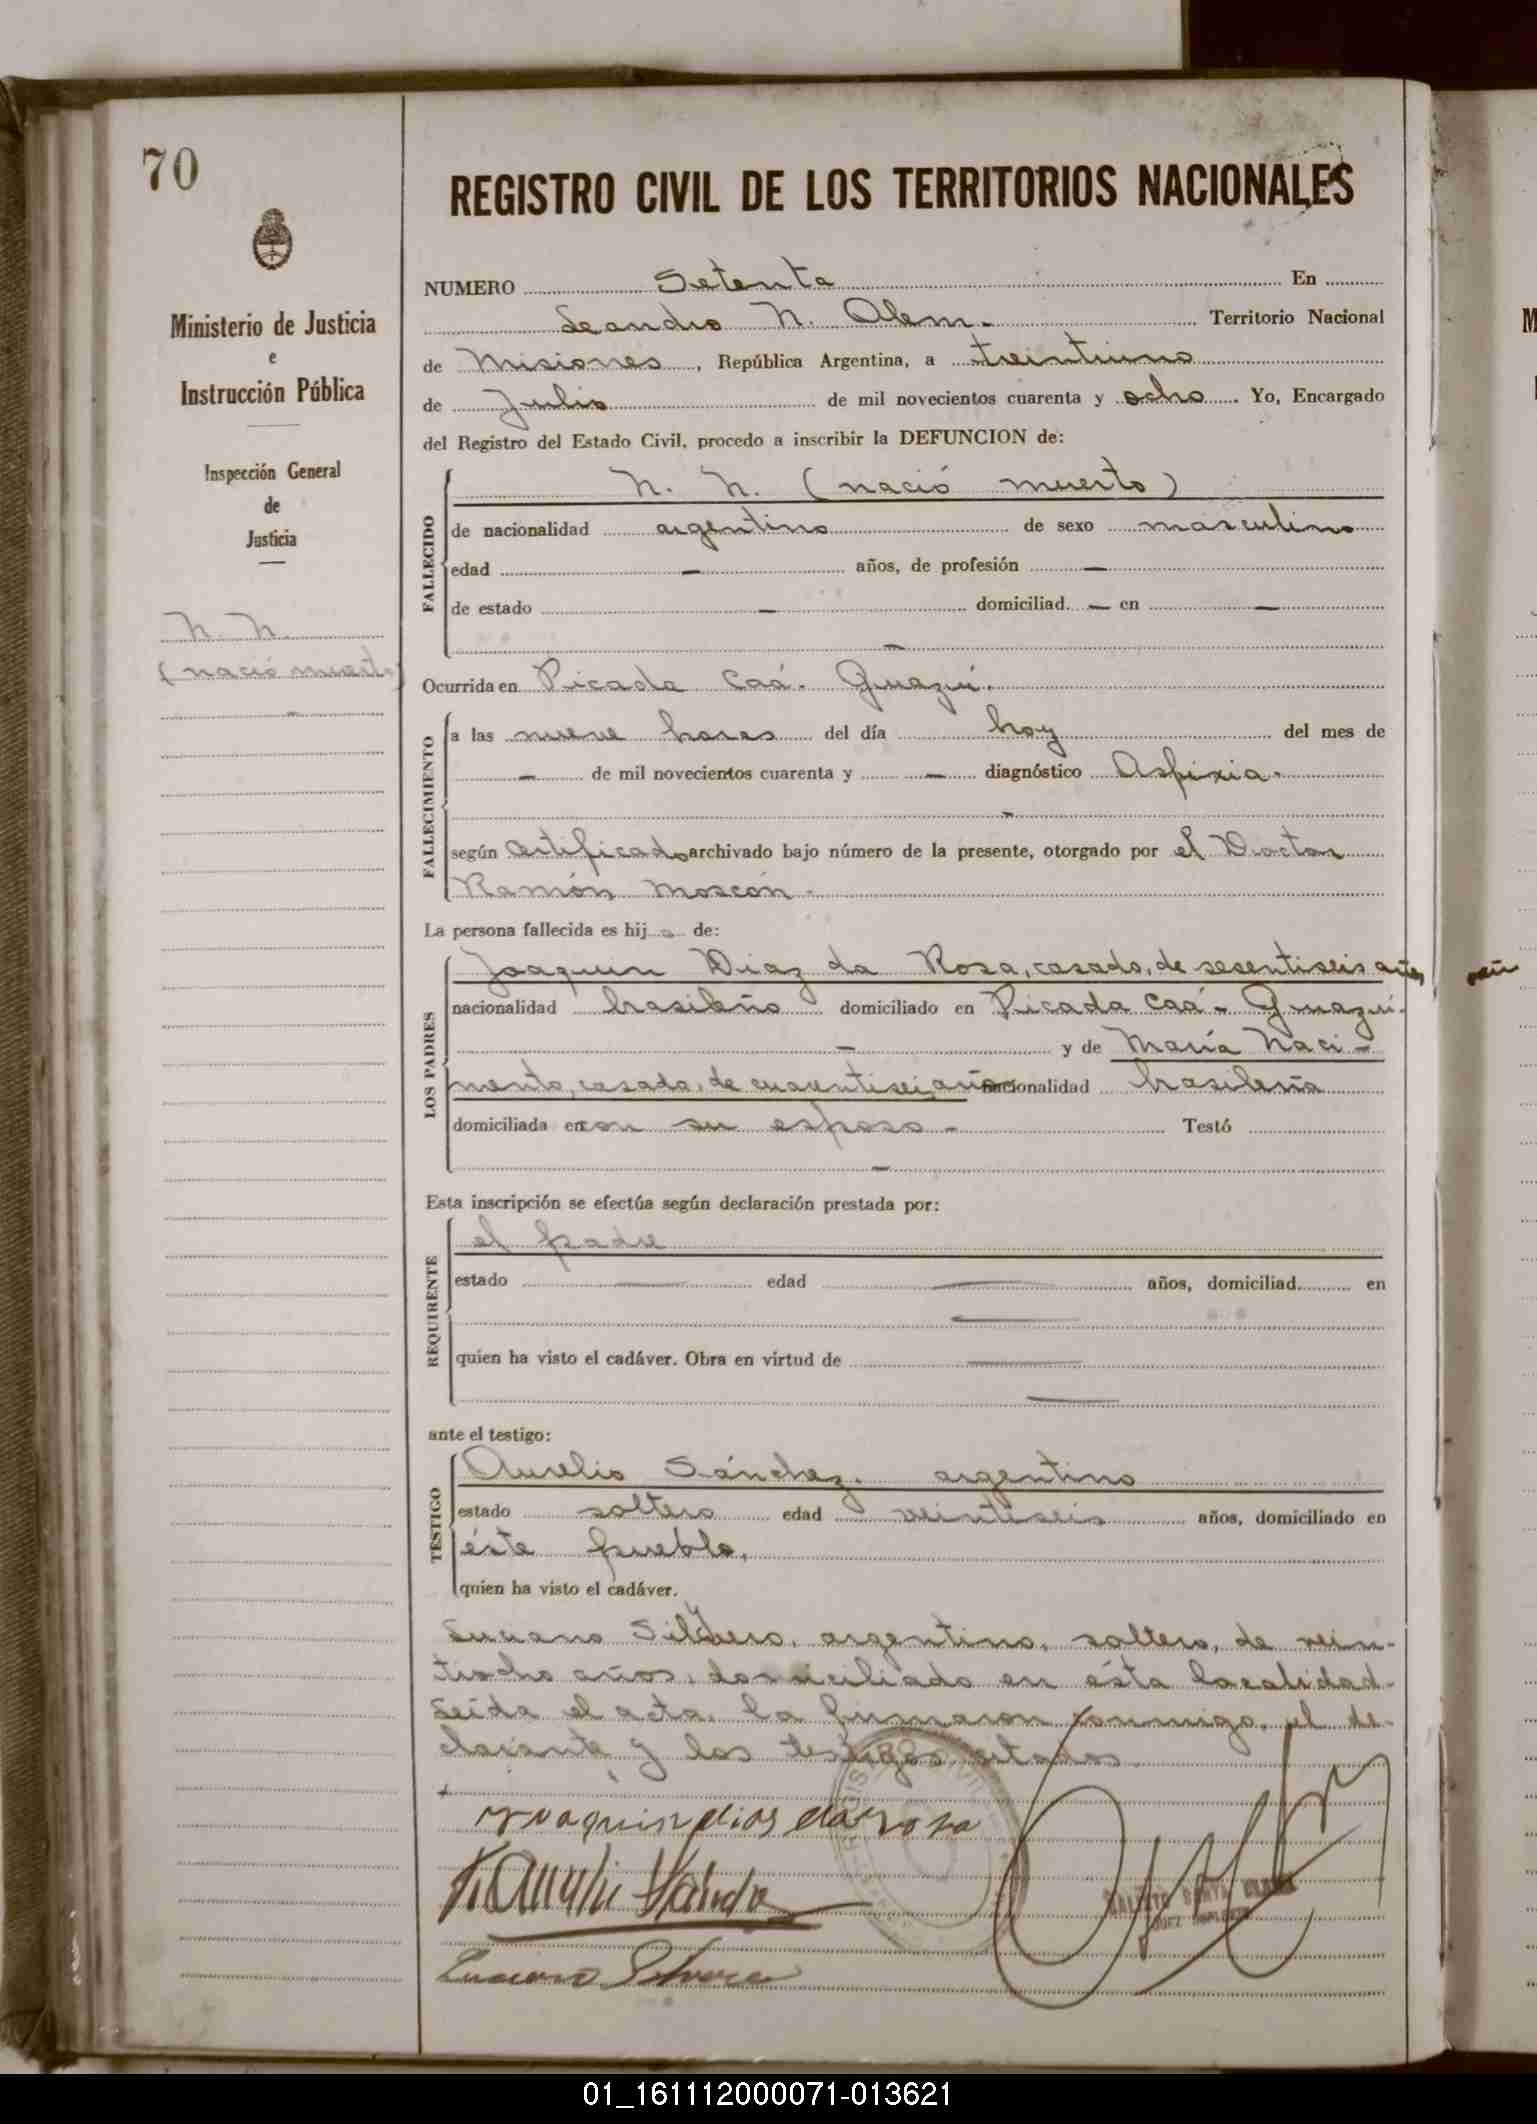 70
REGISTRO CIVIL DE LOS TERRITORIOS NACIONALES
Ministerio de Justicia
e
Instrucción Pública
Inspección General
de
Justicia
N. N.
(nació muerto)
NUMERO Setenta En
Leandro N. Alem. Territorio Nacional
de Misiones, República Argentina, a treintiuno
de Julio de mil novecientos cuarenta y ocho Yo, Encargado
del Registro del Estado Civil, procedo a inscribir la DEFUNCION de:
FALLECIDO
N. N. (nació muerto)
de nacionalidad argentino de sexo masculino
edad — años, de profesión —
de estado — domiciliad. — en —
—
Ocurrida en Picada Caá-Guazú.
FALLECIMIENTO
a las nueve horas del día hoy del mes de
— de mil novecientos cuarenta y — diagnóstico Asfixia.
-
según certificado archivado bajo número de la presente, otorgado por el Doctor
Ramón Moscón-
La persona fallecida es hijo de:
LOS PADRES
Joaquin Diaz da Rosa, casado, de sesentiseis años
nacionalidad brasileño domiciliado en Picada Caá-Guazú.
— y de María Naci-
mento, casada, de cuarentiseis años nacionalidad brasileña
domiciliada en con su esposo - Testó
—
Esta inscripción se efectúa según declaración prestada por:
REQUIRENTE
el padre
estado — edad — años, domiciliad. en
—
quien ha visto el cadáver. Obra en virtud de —
—
ante el testigo:
TESTIGO
Aurelio Sánchez. argentino
estado soltero edad veintiseis años, domiciliado en
éste pueblo.
quien ha visto el cadáver.
Luciano argentino, soltero, de vein-
tiocho años, domiciliado en ésta localidad-
Leída el acta, la firmaron conmigo, el de-
clarante y los testigos citados.
Joaquin dias da rosa
01_161112000071-013621